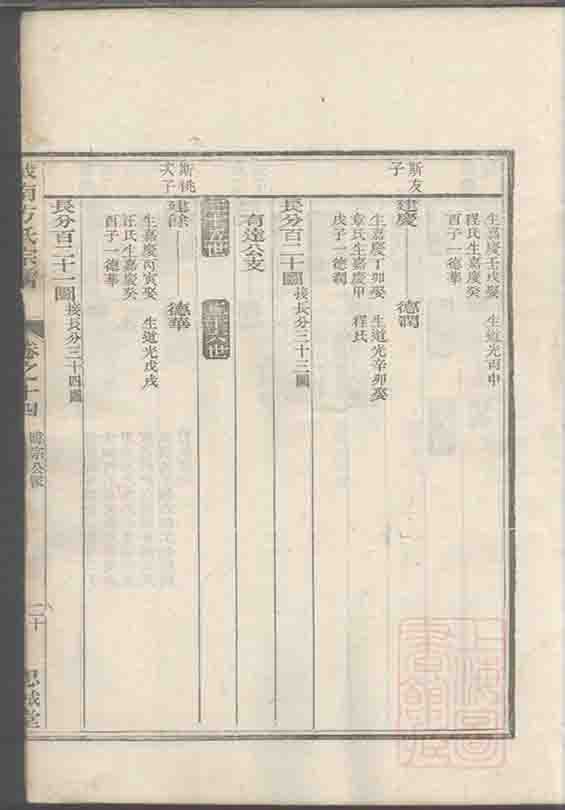 生嘉慶壬戌娶　生道光丙申
程氏生嘉慶癸
酉子一德華
斯友
子
建慶　德潤
生嘉慶丁卯娶　生道光辛卯娶
章氏生嘉慶甲　程氏
戌子一德潤
長分百二十圖 接長分三十三圖
有遠公支
斯桃
次子
建餘　德華
生嘉慶丙寅娶　生道光戊戌
汪氏生嘉慶癸
酉子一德華
長分百二十一圖 接長分三十四圖
城南方氏宗譜
卷之十四
二十
思誠堂
上海圖書館藏